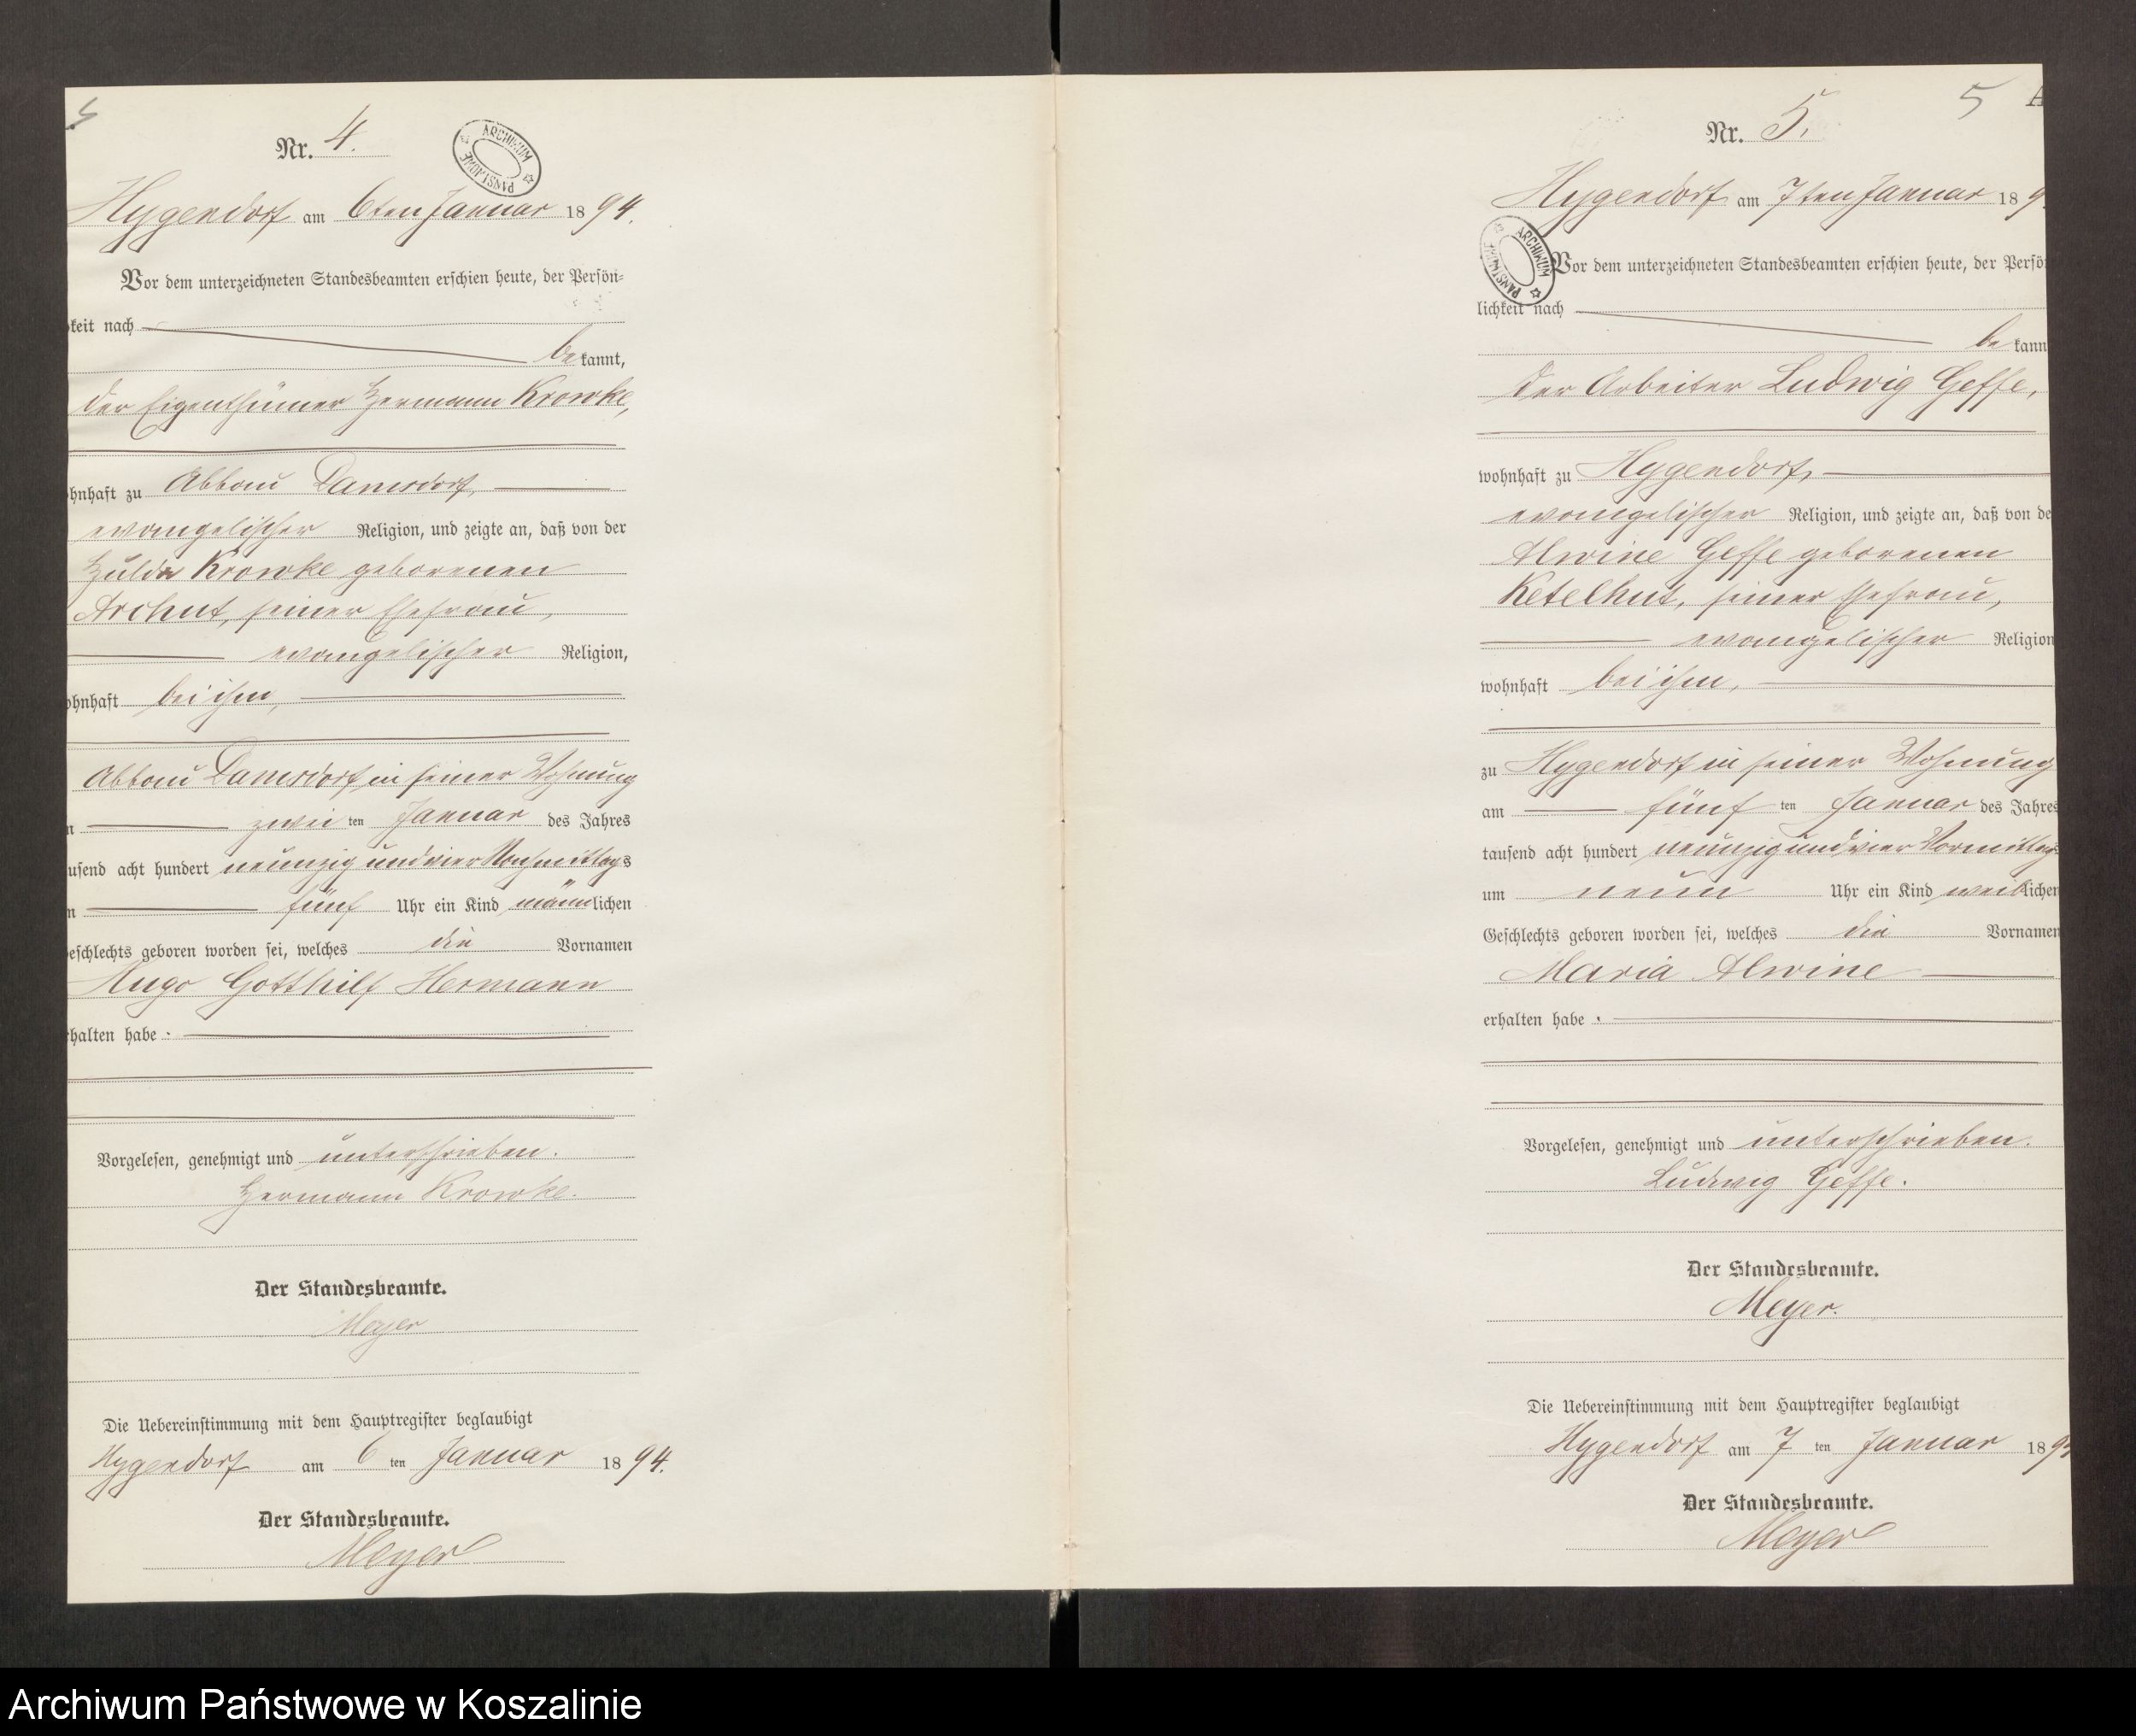 Nr. 4.
ARCHIWUM PAŃSTWOWE
Hygendorf am 6ten Januar 1894.
Vor dem unterzeichneten Standesbeamten erschien heute, der Persön=
keit nach
bekannt,
der Eigenthümer Hermann Krowke,
hnhaft zu Abbau Damsdorf,
evangelischer Religion, und zeigte an, daß von der
Hulda Krowke geborenen
Archut, seiner Ehefrau,
evangelischer Religion,
ohnhaft bei ihm,
Abbau Damsdorf in seiner Wohnung
zwei ten Januar des Jahres
usend acht hundert neunzig und vier Nachmittags
fünf Uhr ein Kind männlichen
eschlechts geboren worden sei, welches die Vornamen
Hugo Gotthilf Hermann
rhalten habe.
Vorgelesen, genehmigt und unterschrieben.
Hermann Krowke.
Der Standesbeamte.
Meyer
Die Uebereinstimmung mit dem Hauptregister beglaubigt
Hygendorf am 6 ten Januar 1894.
Der Standesbeamte.
Meyer
5
Nr. 5.
Hygendorf am 7ten Januar 189
ARCHIWUM PAŃSTWOWE
Vor dem unterzeichneten Standesbeamten erschien heute, der Persö
lichkeit nach
bekann
der Arbeiter Ludwig Geffe,
wohnhaft zu Hygendorf,
evangelischer Religion, und zeigte an, daß von de
Alwine Geffe geborenen
Ketelhut, seiner Ehefrau,
evangelischer Religion
wohnhaft bei ihm,
zu Hygendorf in seiner Wohnung
am fünf ten Januar des Jahres
tausend acht hundert neunzig und vier Vormittags
um neun Uhr ein Kind weiblichen
Geschlechts geboren worden sei, welches die Vornamen
Maria Alwine
erhalten habe.
Vorgelesen, genehmigt und unterschrieben.
Ludwig Geffe.
Der Standesbeamte.
Meyer.
Die Uebereinstimmung mit dem Hauptregister beglaubigt
Hygendorf am 7 ten Januar 189
Der Standesbeamte.
Meyer
Archiwum Państwowe w Koszalinie